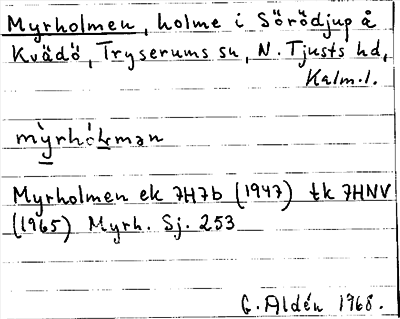 Myrholmen, holme i Sörödjup å
Kvädö, Tryserums sn, N. Tjusts hd,
Kalm.l.
Myrholmen ek 7H7b (1947) tk 7HNV
(1965) Myrh. Sj. 253
G. Aldén 1968.